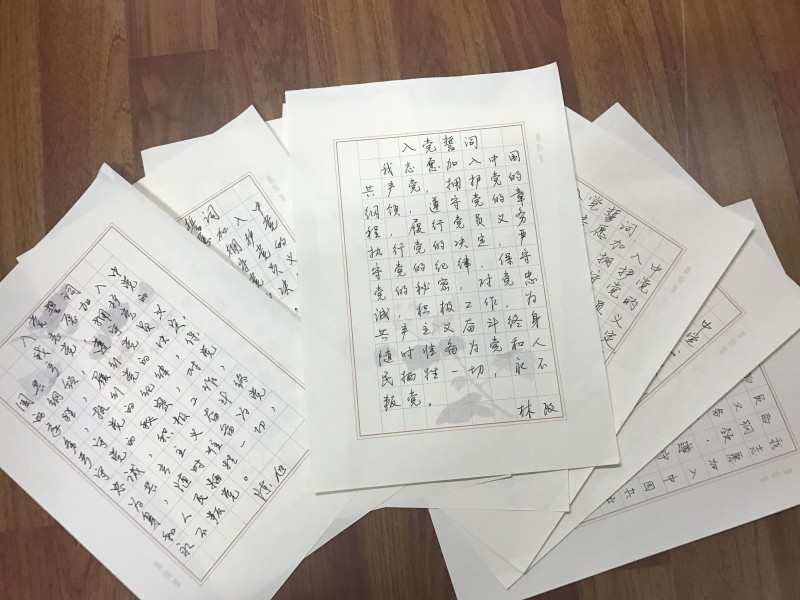 入党誓词
我志愿加入中国
共产党，拥护党的
纲领，遵守党的章
程，履行党员义务
执行党的决定，严
守党的纪律，保守
党的秘密，对党忠
诚，积极工作，为
共产主义奋斗终身
随时准备为党和人
民牺牲一切，永不
叛党。
林政
入党誓词
我志愿加入中
国共产党，拥护党
的纲领，遵守党的
章程，履行党员义
务，执行党的决定，
严守党的纪律，保
守党的秘密，对党
忠诚，积极工作，
为共产主义奋斗终
身，随时准备为党
和人民牺牲一切，
永不叛党。
誓词
愿加入中
拥护党
党的
员义
党誓词
志愿加入中
拥护党
守党的
员义
定
中
党
我志愿加入中国共
纲领，遵守
义务